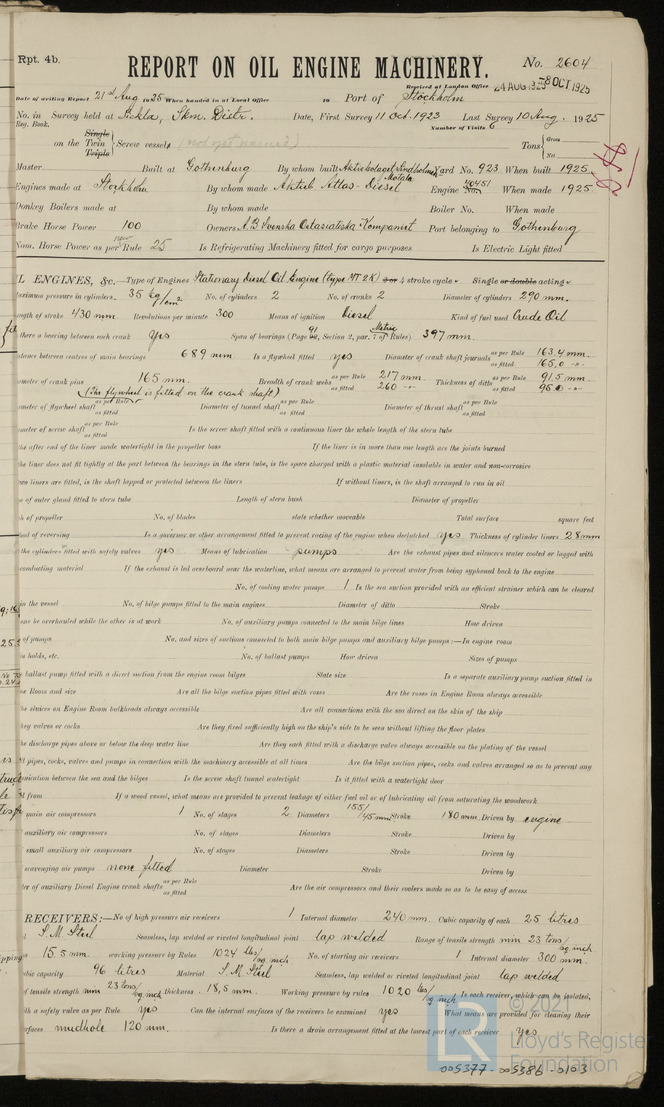 Rpt. 4b.
REPORT ON OIL ENGINE MACHINERY.
No. 2604
Received at London Office
24 AUG 1925 -8 OCT 1925
Date of writing Report 21st Aug 1925 When handed in at Local Office 19 Port of Stockholm
No. in Survey held at Sickla, Skm. Distr. Date, First Survey 11 Oct. 1923 Last Survey 10 Aug. 1925
Reg. Book. Number of Visits 6
on the Single Twin Triple Screw vessel (not yet named) Tons Gross Net
Master Built at Gothenburg By whom built Aktiebolaget Lindholmen Motala Yard No. 923 When built 1925
Engines made at Stockholm By whom made Aktieb. Atlas-Diesel Engine No. When made 1925
Donkey Boilers made at By whom made Boiler No. When made
Brake Horse Power 100 Owners A.B. Svenska Ostasiatiska Kompaniet Port belonging to Gothenburg
Nom. Horse Power as per new Rule 25 Is Refrigerating Machinery fitted for cargo purposes Is Electric Light fitted
L ENGINES, &c.—Type of Engines Stationary Diesel Oil Engine (type MT 2K) 2 or 4 stroke cycle Single or double acting
aximum pressure in cylinders 35 kg/cm² No. of cylinders 2 No. of cranks 2 Diameter of cylinders 290 mm.
ngth of stroke 430 mm Revolutions per minute 300 Means of ignition Diesel Kind of fuel used Crude Oil
there a bearing between each crank Yes Span of bearings (Page 91, Section 2, par. 7 of Rules) Metric 397 mm.
istance between centres of main bearings 689 mm Is a flywheel fitted yes Diameter of crank shaft journals as per Rule 163,4 mm. as fitted 165,0
ameter of crank pins 165 mm. Breadth of crank webs as per Rule 217 mm. as fitted 260 Thickness of ditto as per Rule 91,5 mm. as fitted 96,0
(The flywheel is fitted on the crank shaft)
ameter of flywheel shaft as per Rule as fitted Diameter of tunnel shaft as per Rule as fitted Diameter of thrust shaft as per Rule as fitted
ameter of screw shaft as per Rule as fitted Is the screw shaft fitted with a continuous liner the whole length of the stern tube
the after end of the liner made watertight in the propeller boss If the liner is in more than one length are the joints burned
the liner does not fit tightly at the part between the bearings in the stern tube, is the space charged with a plastic material insoluble in water and non-corrosive
two liners are fitted, is the shaft lapped or protected between the liners If without liners, is the shaft arranged to run in oil
e of outer gland fitted to stern tube Length of stern bush Diameter of propeller
h of propeller No. of blades state whether moveable Total surface square feet
hod of reversing Is a governor or other arrangement fitted to prevent racing of the engine when declutched yes Thickness of cylinder liners 28 mm
the cylinders fitted with safety valves yes Means of lubrication pumps Are the exhaust pipes and silencers water cooled or lagged with
conducting material If the exhaust is led overboard near the waterline, what means are arranged to prevent water from being syphoned back to the engine
No. of cooling water pumps 1 Is the sea suction provided with an efficient strainer which can be cleared
in the vessel No. of bilge pumps fitted to the main engines Diameter of ditto Stroke
one be overhauled while the other is at work No. of auxiliary pumps connected to the main bilge lines How driven
of pumps No. and sizes of suctions connected to both main bilge pumps and auxiliary bilge pumps:—In engine room
n holds, etc. No. of ballast pumps How driven Sizes of pumps
ballast pump fitted with a direct suction from the engine room bilges State size Is a separate auxiliary pump suction fitted in
ne Room and size Are all the bilge suction pipes fitted with roses Are the roses in Engine Room always accessible
he sluices on Engine Room bulkheads always accessible Are all connections with the sea direct on the skin of the ship
hey valves or cocks Are they fixed sufficiently high on the ship's side to be seen without lifting the floor plates
he discharge pipes above or below the deep water line Are they each fitted with a discharge valve always accessible on the plating of the vessel
ll pipes, cocks, valves and pumps in connection with the machinery accessible at all times Are the bilge suction pipes, cocks and valves arranged so as to prevent any
nication between the sea and the bilges Is the screw shaft tunnel watertight Is it fitted with a watertight door
d from If a wood vessel, what means are provided to prevent leakage of either fuel oil or of lubricating oil from saturating the woodwork
main air compressors 1 No. of stages 2 Diameters 155/45 mm Stroke 180 mm Driven by engine
auxiliary air compressors No. of stages Diameters Stroke Driven by
small auxiliary air compressors No. of stages Diameters Stroke Driven by
scavenging air pumps none fitted Diameter Stroke Driven by
ter of auxiliary Diesel Engine crank shafts as per Rule as fitted Are the air compressors and their coolers made so as to be easy of access
RECEIVERS:—No of high pressure air receivers 1 Internal diameter 240 mm. Cubic capacity of each 25 litres
S.M. Steel Seamless, lap welded or riveted longitudinal joint lap welded Range of tensile strength mm 23 tons/sq inch
15.5 mm. working pressure by Rules 1024 lbs/sq inch No. of starting air receivers 1 Internal diameter 300 mm.
bic capacity 96 litres Material S.M. Steel Seamless, lap welded or riveted longitudinal joint lap welded
of tensile strength mm 23 tons/sq inch thickness 18,5 mm. Working pressure by rules 1020 lbs/sq inch Is each receiver, which can be isolated,
th a safety valve as per Rule yes Can the internal surfaces of the receivers be examined yes What means are provided for cleaning their
rfaces mudhole 120 mm. Is there a drain arrangement fitted at the lowest part of each receiver yes
LR © 2021
Lloyd's Register
Foundation
005377-005386-0103